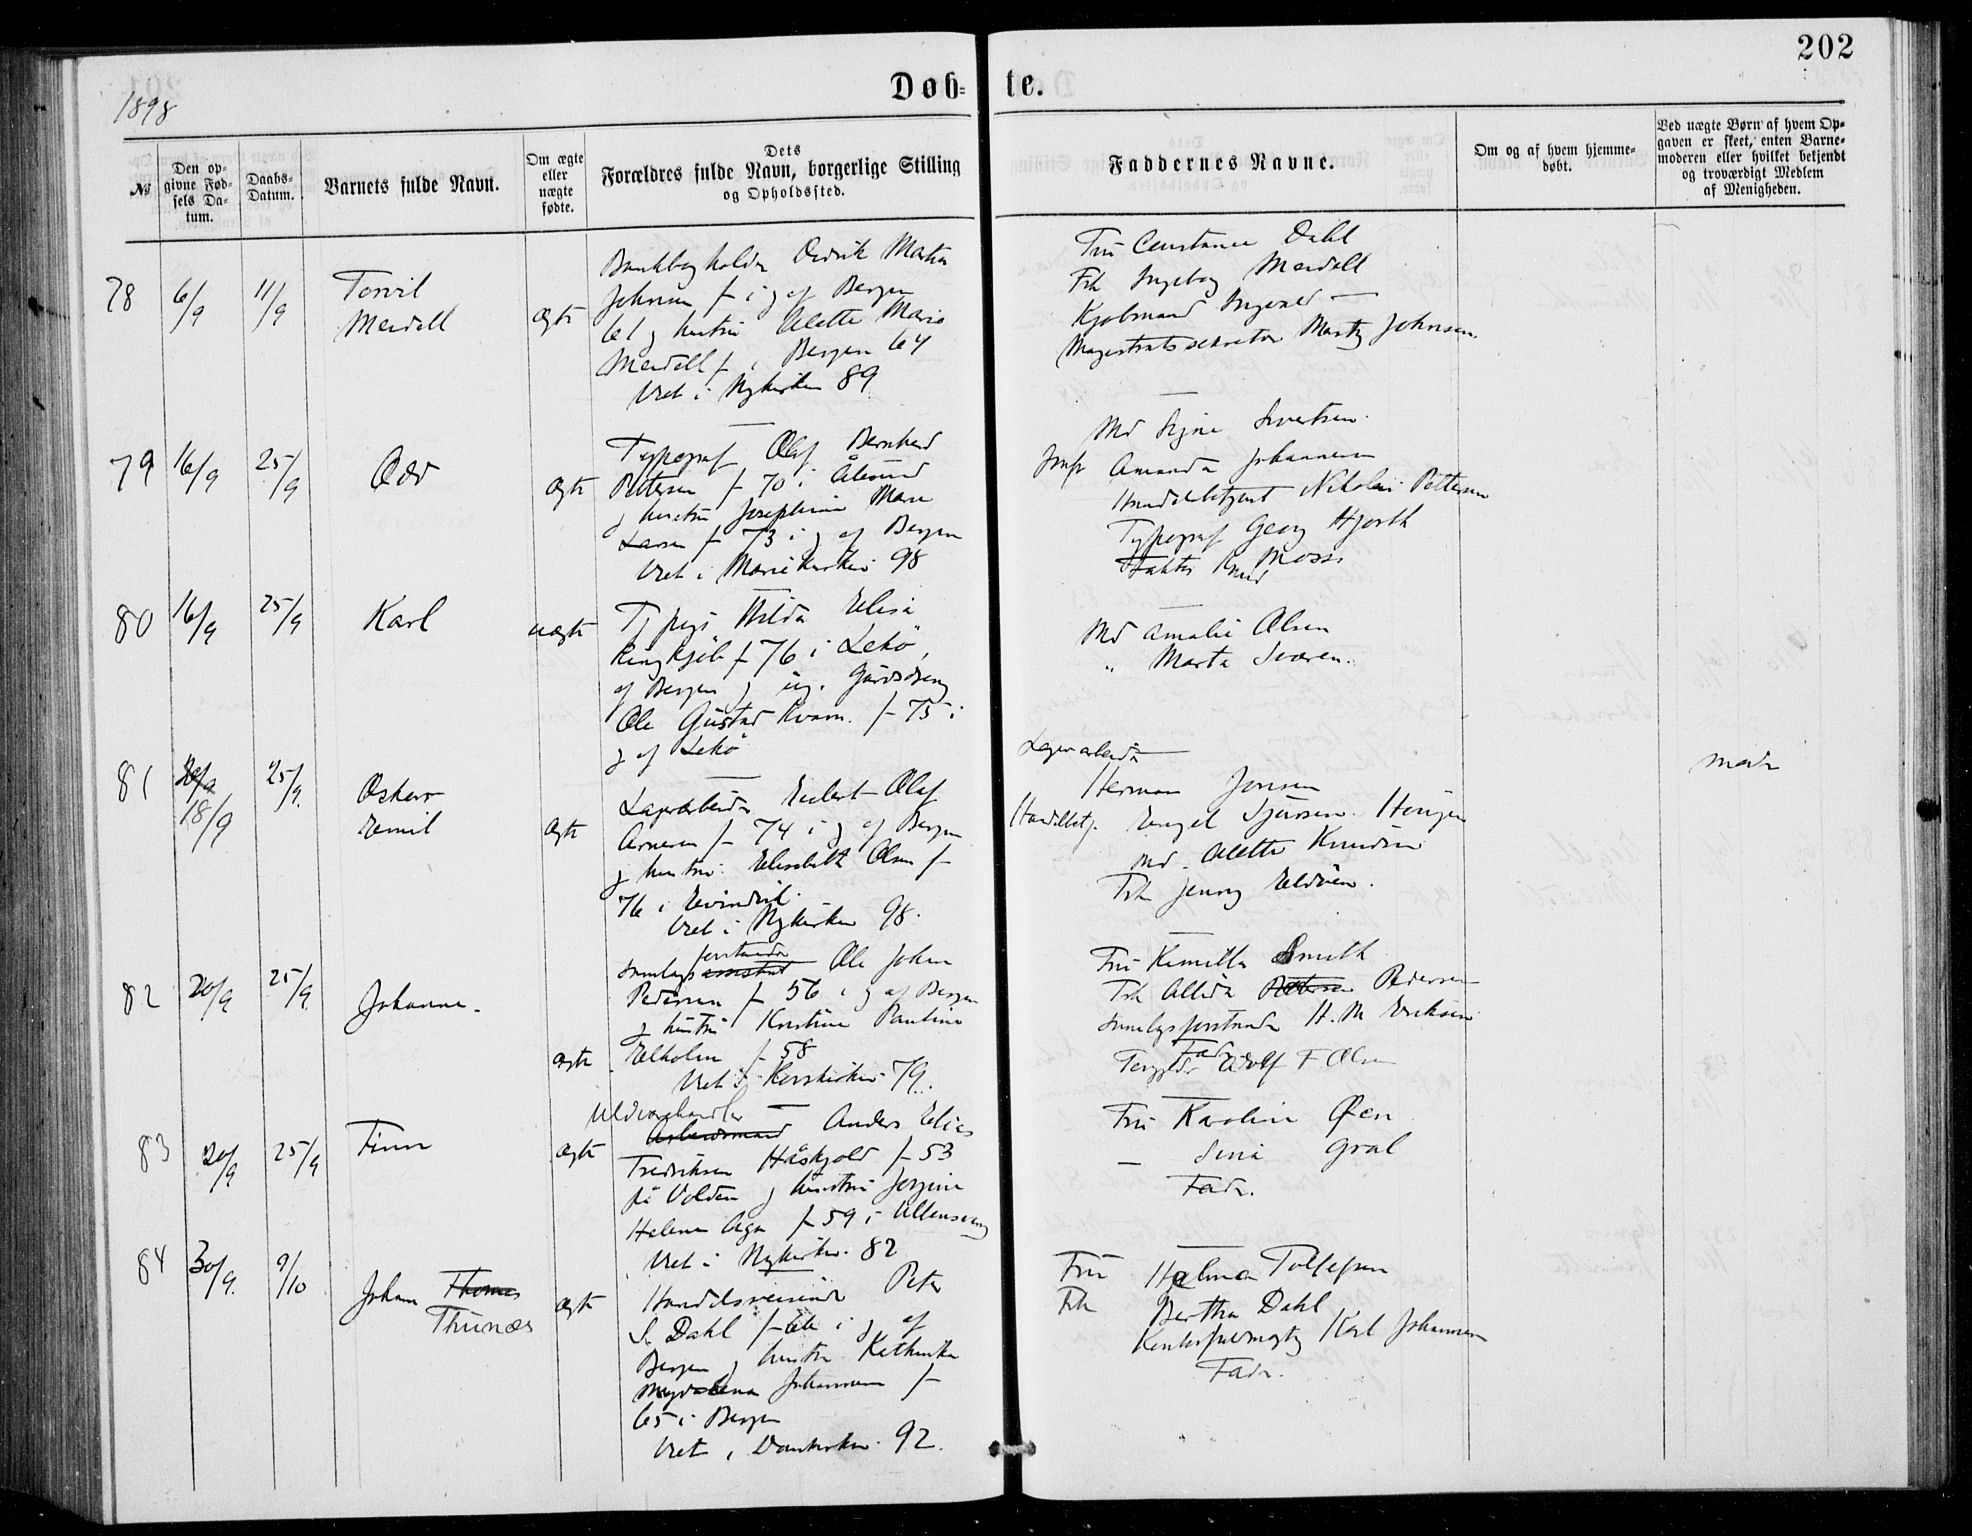 202
1898
Døb-
te.
№
Den op-
givne Fød-
sels Da-
tum.
Daabs-
Datum.
Barnets fulde Navn.
Om ægte
eller
uægte
fødte.
Dets
Forældres fulde Navn, borgerlige Stilling
og Opholdssted.
Faddernes Navne.
Om og af hvem hjemme-
døbt.
Ved uægte Børn af hvem Op-
gaven er skeet, enten Barne-
moderen eller hvilket bekjendt
og troværdigt Medlem
af Menigheden.
78 6/9 11/9
Torvil
Meidell
ægte
Bankbogholder Didrik Martin
Johnsen f i g af Bergen
61 g hustru Alette Marie
Meidell f i Bergen 64
Viet i Nykirken 89
Fru Constance Dahl
Frk Ingeborg Meidell
Kjøbmand
Magistratssekretær Johnsen
79 16/9 25/9
Odd
ægte
Typograf Olaf Bernhard
Pettersen f 70 i Ålesund
g hustru Josephine Marie
Larsen f 73 i g af Bergen
Viet i Mariekirken 98
Md Signe Sivertsen
Amanda Johannesen
Handelsbetjent Nikolai Pettersen
Typograf Georg Hjorth
Faktor Knud Moss
80 16/9 25/9
Karl
uægte
Hilda Elisa
f 76 i Lekø,
af Bergen g ug. Gårdsdreng
Ole Gustad Kvam. f 75 i
g af Lekø
Md Amalie Olsen
" Marta
moder
81 18/9 25/9
Oskar
Emil
ægte
Lagerarbeider Olaf
f 74 i g af Bergen
g hustru Elisabeth Olsen f
76 i Eivindvik
Viet i Nykirken 98.
Lagerarbeider
Herman Jensen
Handelsbetj. Engel
Md. Alette Knudsen
Frk Jenny
82 20/9 25/9
Johanne.
ægte
forstander
Samlags assistent Ole Johan
Pedersen f 56 i g af Bergen
g hustru Kristine Pauline
Ekholm f 58
Viet i Korskirken 79.
Fru Kamilla Smith
Frk Alida Pettersen Pedersen
Samlagsforstander H. M Eriksen
Fader
Adolf F Olsen
83 20/9 25/9
Finn
ægte
Uldvarehandler
Arbeidsmand Anders Elias
Fredriksen Håskjold f 53
på Volden g hustru Jorgine
Helene Aga f 59 i Ullensvang
Viet i Nykirken. 82
Fru Karoline Øen
— Sina Gral
Fader.
84 30/9. 9/10
Johan Thomas
Thunæs
ægte
Handelsreisende Peter
S. Dahl f 66 i g af
Bergen g hustru Kathinka
Magdalena Johannesen f
65 i Bergen
Viet i Domkirken 92.
Fru Helma Tollefsen
Frk Bertha Dahl
Kontorfuldmægtig Karl Johannesen
Fader.